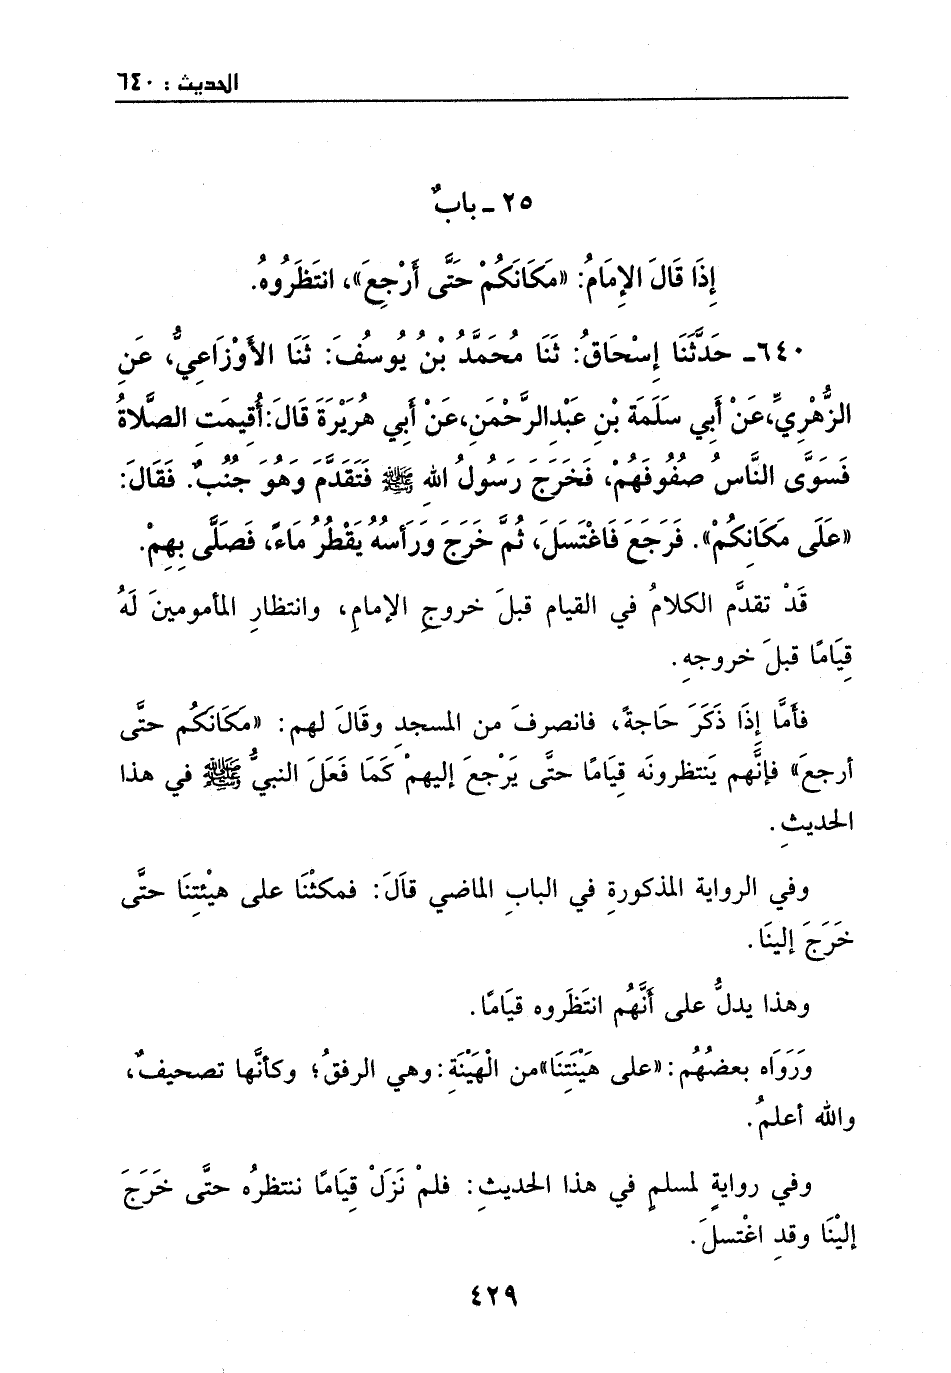 الحديث : ٦٤٠
٢٥ ـ بابٌ
إِذَا قَالَ الإِمَامُ: «مَكَانَكُمْ حَتَّى أَرْجِعَ»، انتَظَرُوهُ.
٦٤٠ـ حَدَّثَنَا إِسْحَاقُ: ثَنَا مُحَمَّدُ بْنُ يُوسُفَ: ثَنَا الأَوْزَاعِيُّ، عَنِ
الزُّهْرِيِّ،عَنْ أَبِي سَلَمَةَ بْنِ عَبْدِالرَّحْمَنِ،عَنْ أَبِي هُرَيْرَةَ قَالَ:أُقِيمَتِ الصَّلاةُ
فَسَوَّى النَّاسُ صُفُوفَهُمْ، فَخَرَجَ رَسُولُ اللهِ ﷺ فَتَقَدَّمَ وَهُوَ جُنُبٌ. فَقَالَ:
«عَلَى مَكَانِكُمْ». فَرَجَعَ فَاغْتَسَلَ، ثُمَّ خَرَجَ وَرَأسُهُ يَقْطُرُ مَاءً، فَصَلَّى بِهِمْ.
قَدْ تقدَّم الكلامُ في القيام قبلَ خروجِ الإمامِ، وانتظارِ المأمومينَ لَهُ
قِيَامًا قبلَ خروجهِ.
فأمَّا إِذَا ذَكَرَ حَاجةً، فانصرفَ من المسجدِ وقَالَ لهم: «مَكَانَكُم حتَّى
أرجعَ» فإنَّهم يَنتظرونَه قِيَامًا حتَّى يَرْجعَ إليهمْ كَمَا فَعَلَ النبيُّ ﷺ في هذا
الحديثِ.
وفي الروايةِ المذكورةِ في البابِ الماضي قَالَ: فمكثْنَا على هيْئتِنَا حتَّى
خَرَجَ إلينَا.
وهذا يدلُّ على أَنَّهُم انتَظَروه قيَامًا.
وَرَوَاه بعضُهُم:«على هَيْنَتِنَا»من الْهَيْنَةِ:وهي الرفقُ؛ وكأنَّها تصحيفٌ،
والله أعلمُ.
وفي روايةٍ لمسلمٍ في هذا الحديثِ: فلمْ نَزَلْ قِيَامًا ننتظرُه حتَّى خَرَجَ
إليْنَا وقدِ اغْتسلَ.
٤٢٩